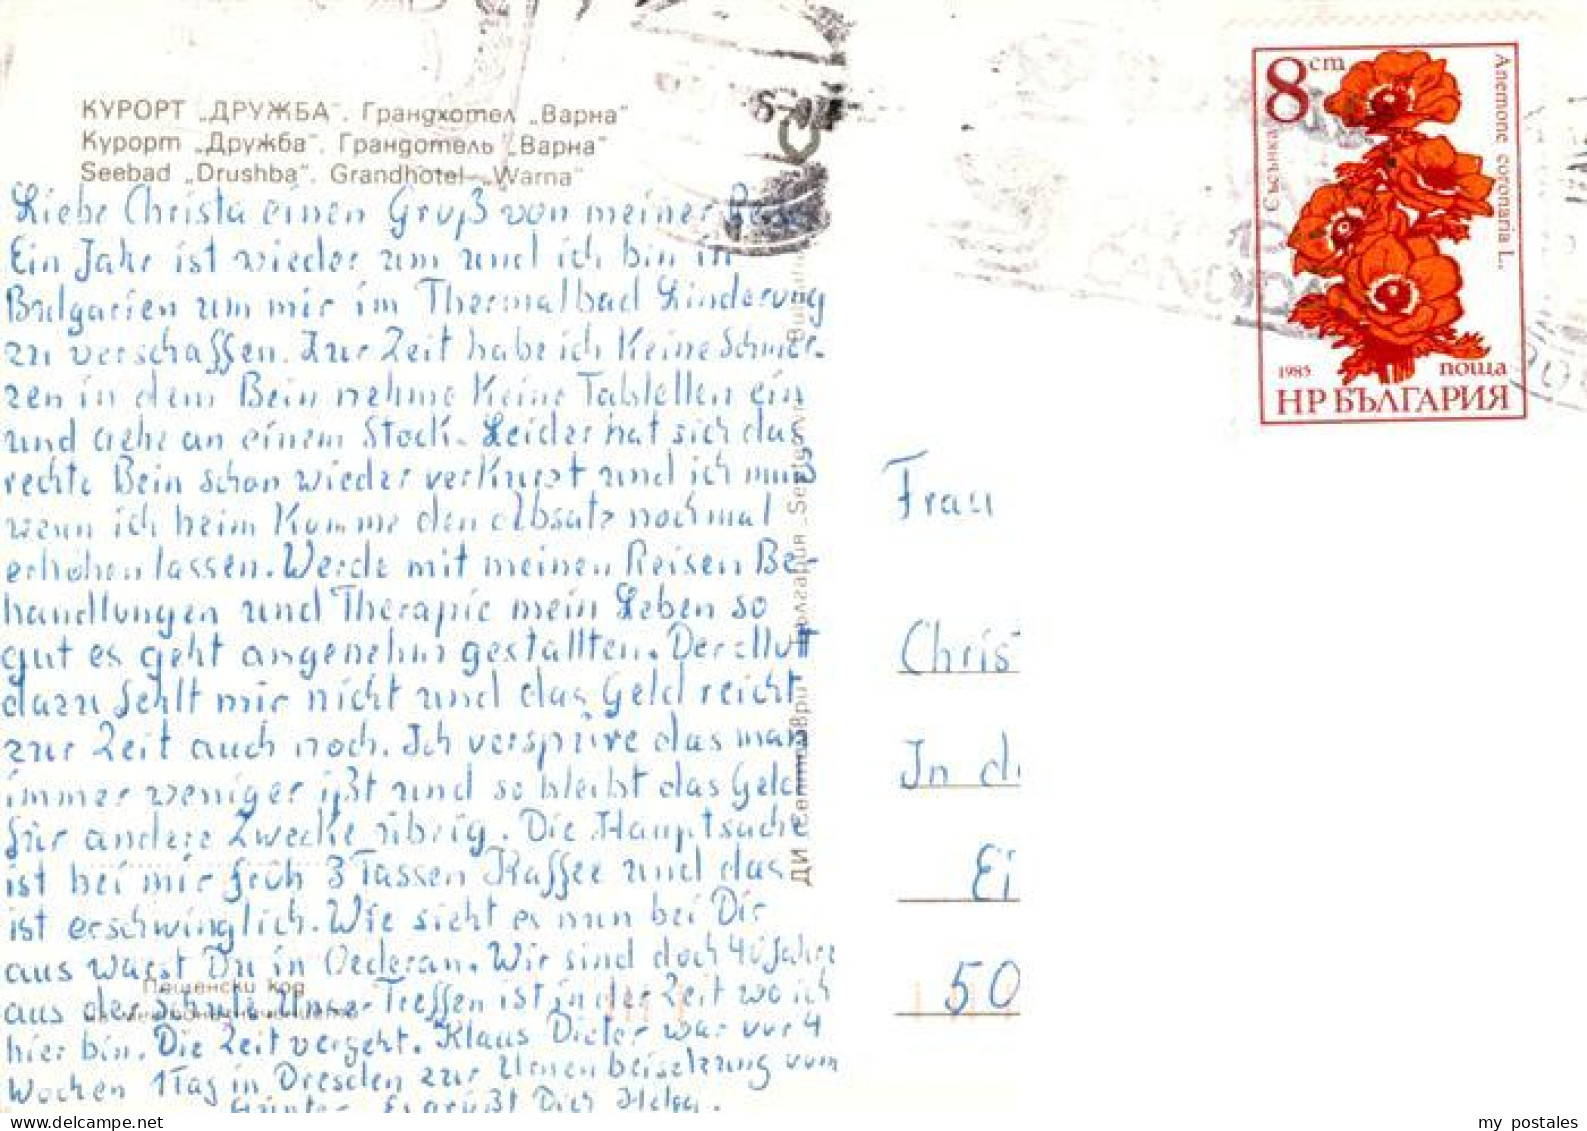 КУРОРТ „ДРУЖБА“. Грандхотел „Варна“
Курорт „Дружба“. Грандотель „Варна“
Seebad „Drushba“. Grandhotel „Warna“
Liebe Christa einen Gruß von meiner
Ein Jahr ist wieder um und ich bin in
Bulgarien um mir im Thermalbad Linderung
zu verschaffen. Zur Zeit habe ich keine Schmer-
zen in dem Bein nehme keine Tabletten ein
und gehe an einem Stock. Leider hat sich das
rechte Bein schon wieder verkürzt und ich muß
wenn ich heim komme den Absatz nochmal
erhöhen lassen. Werde mit meinen Reisen Be-
handlungen und Therapie mein Leben so
gut es geht angenehm gestallten. Der Mut
dazu fehlt mir nicht und das Geld reicht
zur Zeit auch noch. Ich verspüre das man
immer weniger ißt und so bleibt das Geld
für andere Zwecke übrig. Die Hauptsache
ist bei mir früh 3 Tassen Kaffee und das
ist erschwinglich. Wie sieht es nun bei Dir
aus warst Du in Oederan. Wir sind doch 40 Jahre
aus der Schule. Unser Treffen ist in der Zeit wo ich
hier bin. Die Zeit vergeht. Klaus Dieter war vor 4
Wochen 1 Tag in Dresden zur Urnenbeisetzung vom
Günter. Es grüßt Dich Helga.
Пощенски код
ДИ Септември
България
8 ст
Съсънка
Anemone coronaria L.
1985
поща
НР БЪЛГАРИЯ
Frau
Christ
In d
Ei
50
my postales